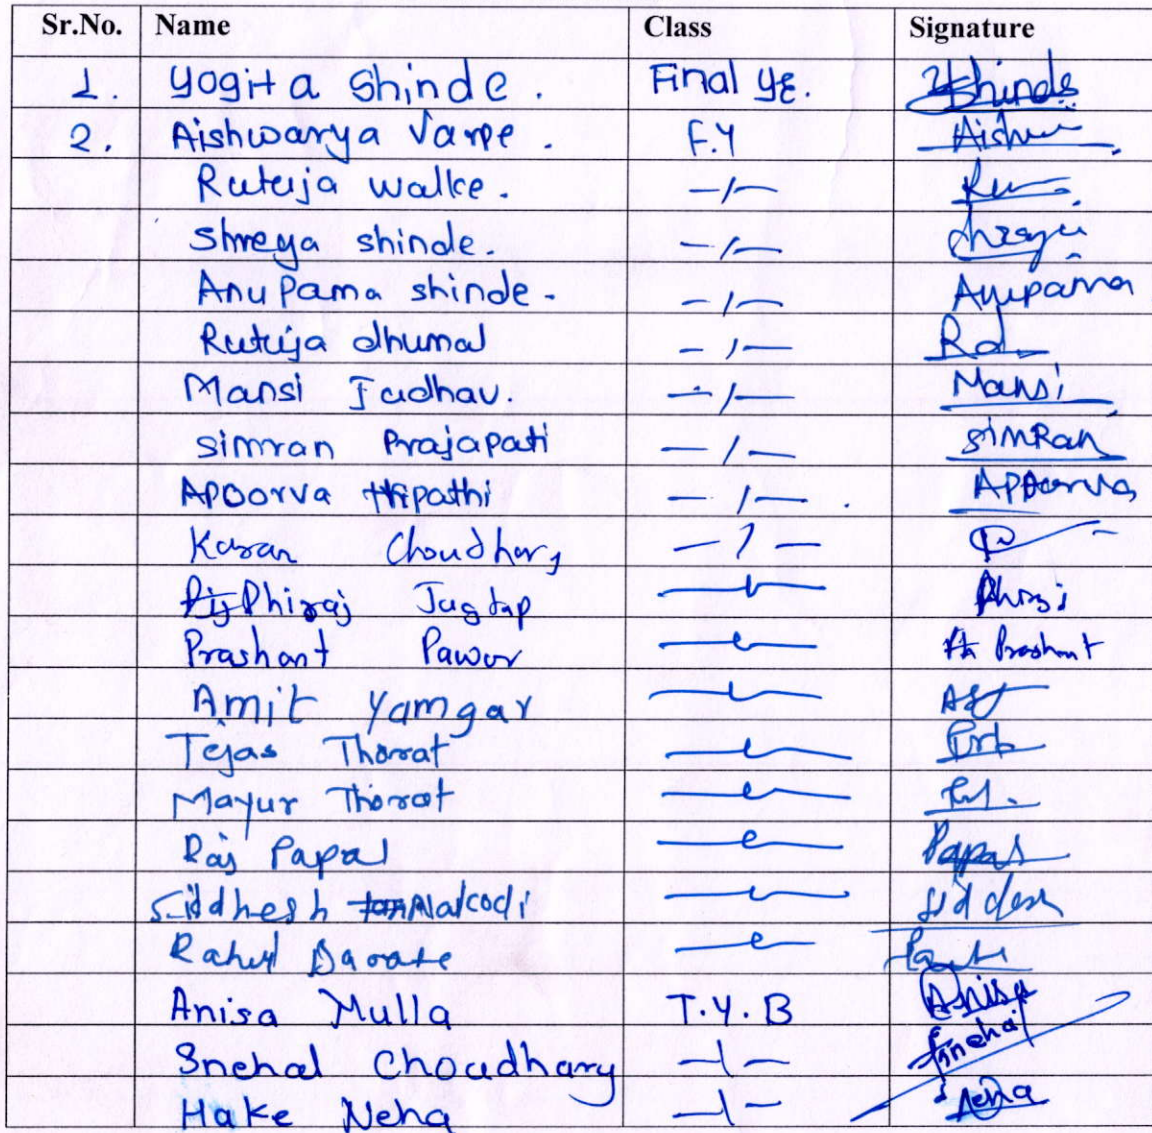 Sr.No. Name Class Signature
1. Yogita Shinde. Final ye. YShinde
2. Aishwarya Varpe. F.Y Aishw
Rutuja walke. -/-
Shreya shinde. -/- Shreya
AnuPama shinde. -/- Anupama
Rutuja dhumal -/- Rd
Mansi Jadhav. -/- Mansi
simran Prajapati -/- simRan
Apoorva tripathi -/-. Apoorva
Karan Choudhary -/-
Dhiraj Jagtap —"—
Prashant Pawar —"— Prashant
Amit Yamgar —"—
Tejas Thorat —"—
Mayur Thorat —"—
Raj Papal —"— Papal
Siddhesh Malkodi —"— Siddesh
Rahul Darate —"—
Anisa Mulla T.Y.B Anisa
Snehal Choudhary -\- Snehal
Hake Neha -\- Neha